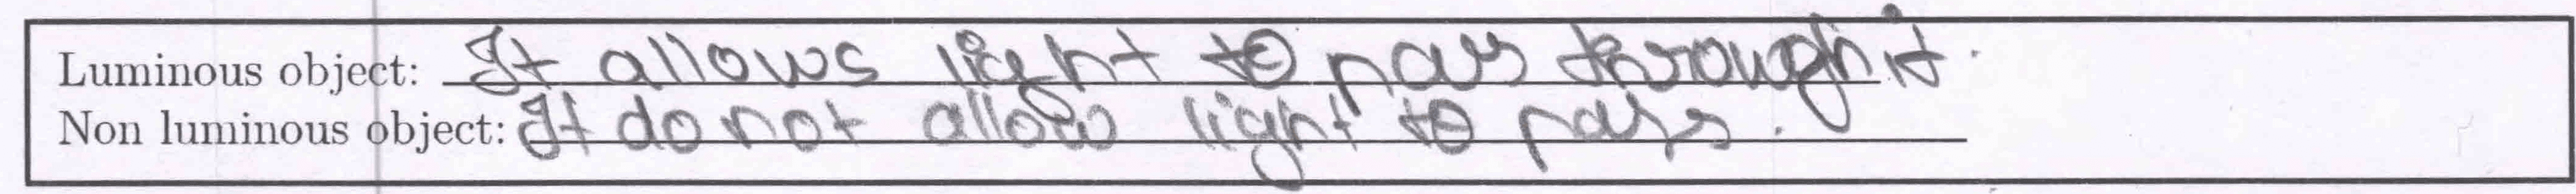 Luminous object: It allows light to pass through it.
Non luminous object: It do not allow light to pass.